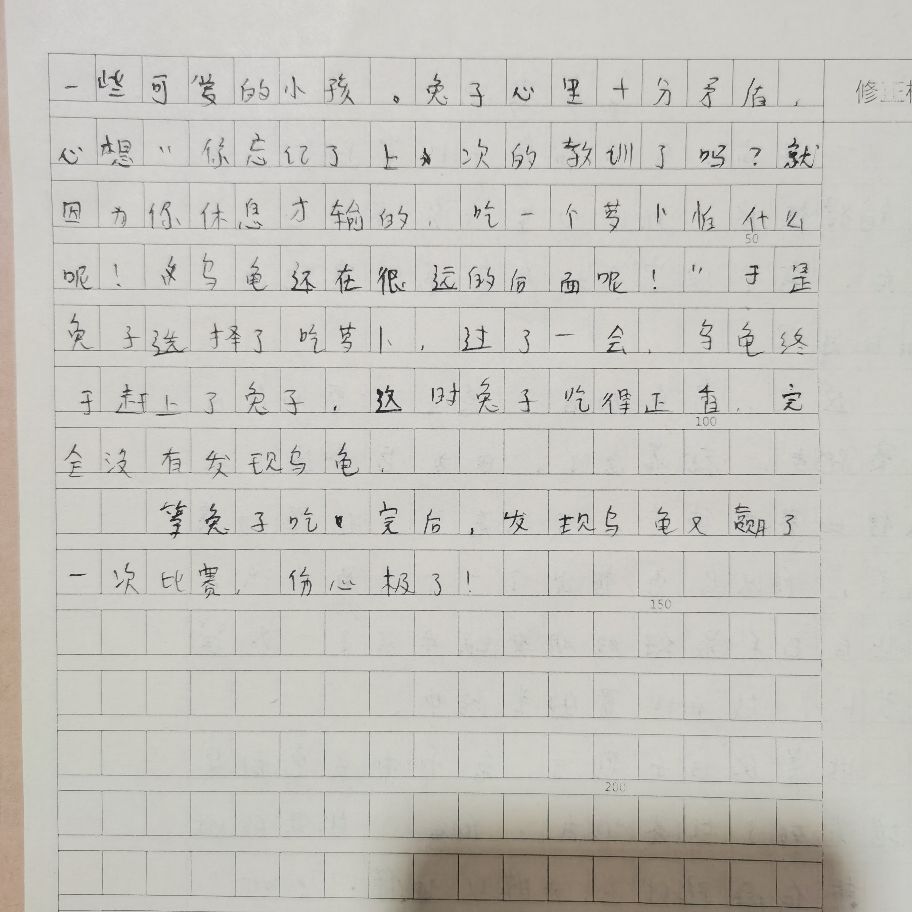 一些可爱的小孩。兔子心里十分矛盾，修正
心想“你忘记了上次的教训了吗？就
因为你休息才输的，吃一个萝卜怕什么
50
呢！乌龟还在很远的后面呢！”于是
兔子选择了吃萝卜，过了一会，乌龟终
于赶上了兔子，这时兔子吃得正香，完
100
全没有发现乌龟，
等兔子吃完后，发现乌龟又赢了
一次比赛，伤心极了！
150
200